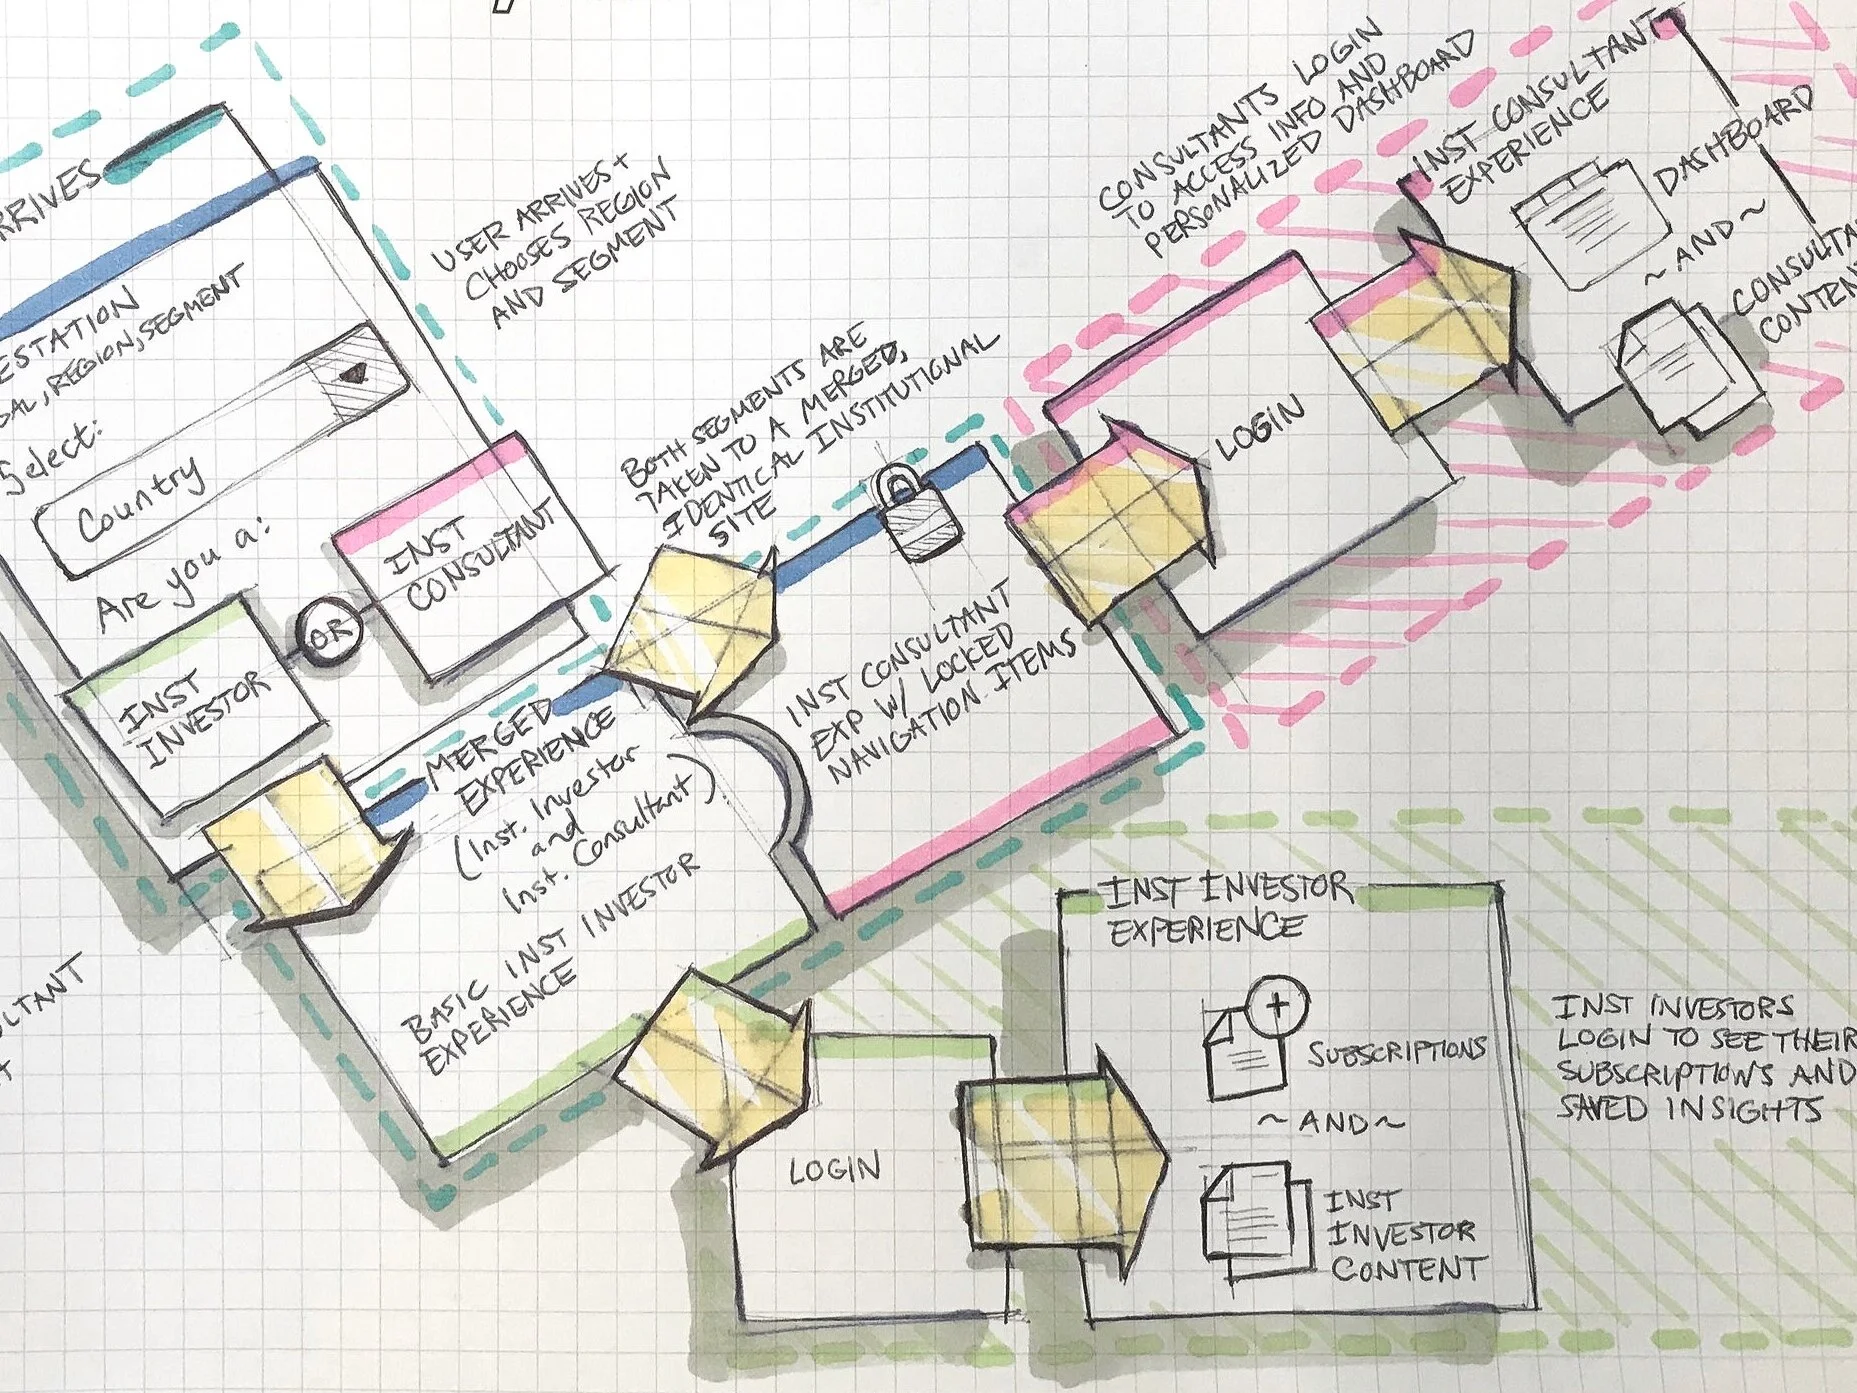 USER ARRIVES +
CHOOSES REGION
AND SEGMENT
Select:
Country
Are you a:
INST
INVESTOR
OR
INST
CONSULTANT
BOTH SEGMENTS ARE
TAKEN TO A MERGED,
IDENTICAL INSTITUTIONAL
SITE
MERGED
EXPERIENCE
(Inst. Investor
and
Inst. Consultant)
BASIC INST INVESTOR
EXPERIENCE
INST CONSULTANT
EXP W/ LOCKED
NAVIGATION ITEMS
CONSULTANTS LOGIN
TO ACCESS INFO AND
PERSONALIZED DASHBOARD
LOGIN
INST CONSULTANT
EXPERIENCE
DASHBOARD
~AND~
LOGIN
INST INVESTOR
EXPERIENCE
SUBSCRIPTIONS
~AND~
INST
INVESTOR
CONTENT
INST INVESTORS
LOGIN TO SEE THEIR
SUBSCRIPTIONS AND
SAVED INSIGHTS